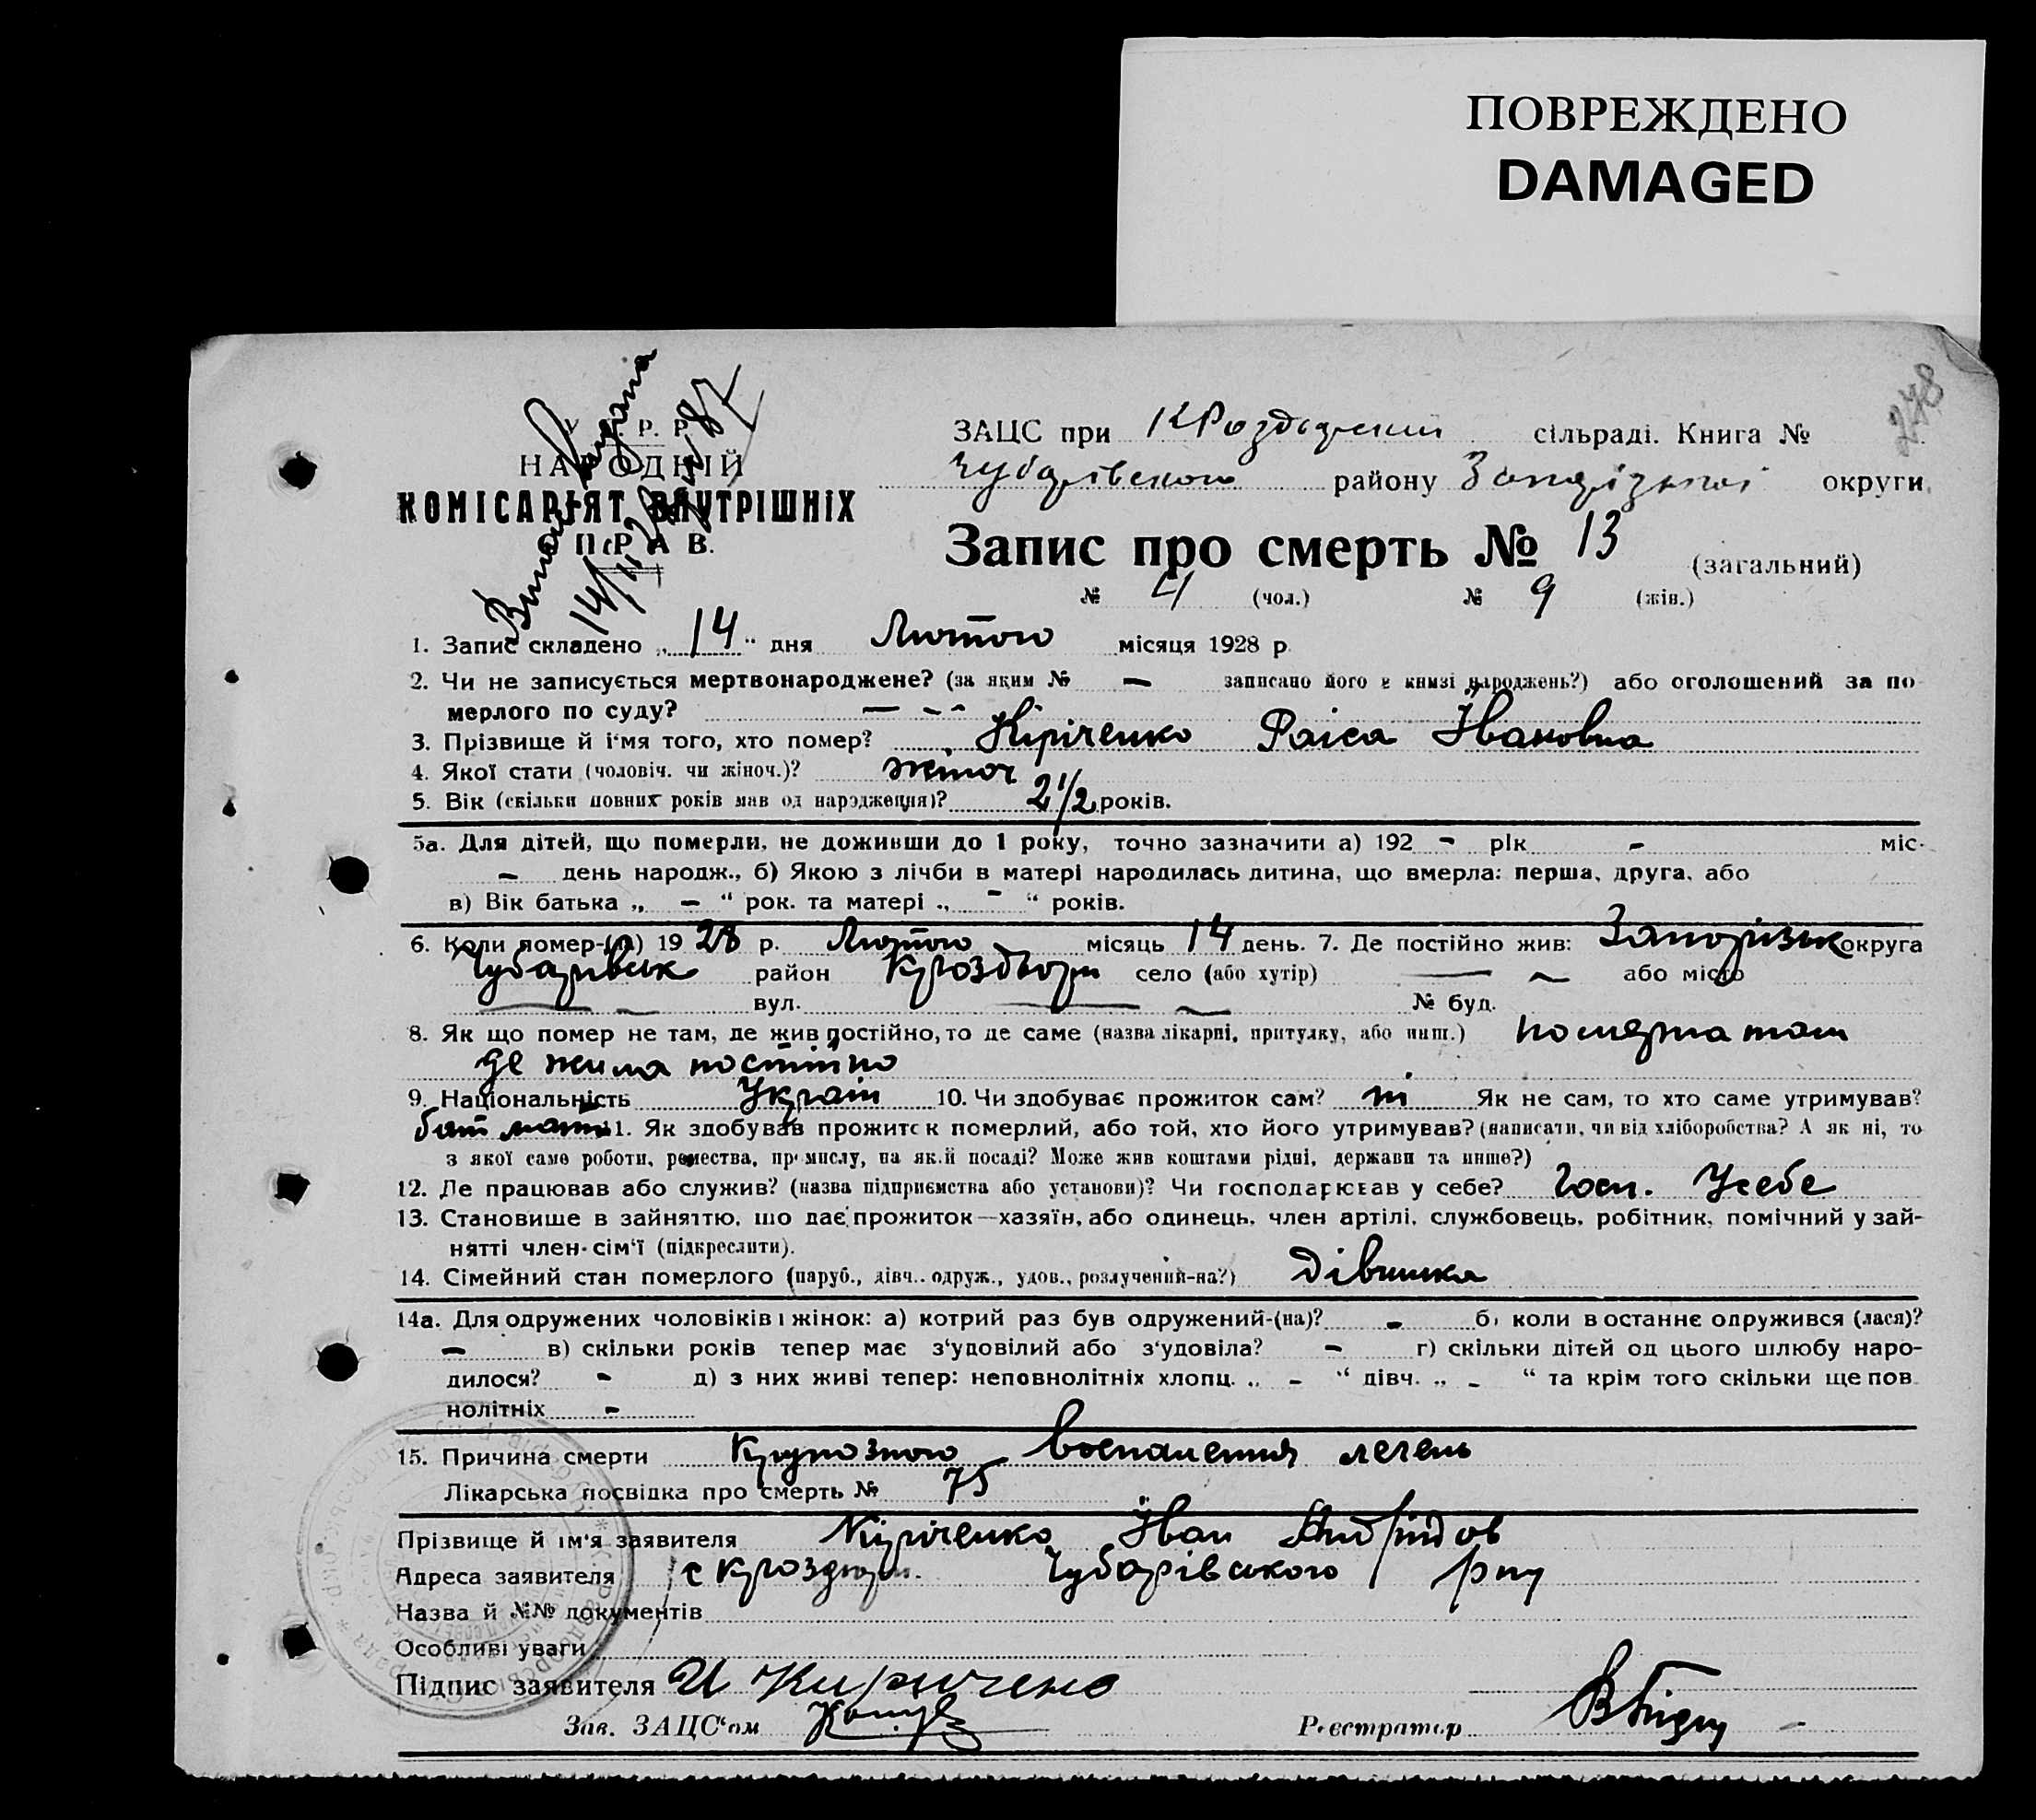 ПОВРЕЖДЕНО
DAMAGED
278
У. С. Р. Р.
НАРОДНІЙ
КОМІСАРІЯТ ВНУТРІШНІХ
СПРАВ.
14/II 28
ЗАЦС при сільраді. Книга №
Чубарівського району Запорізької округи
Запис про смерть № 13 (загальний)
№ 4 (чол.) № 9 (жін.)
1. Запис складено „ 14 “ дня Лютого місяця 1928 р.
2. Чи не записується мертвонароджене? (за яким № — записано його в книзі народжень?) або оголошений за по-
мерлого по суду? — - -
3. Прізвище й ім'я того, хто помер? Кіріченко Раїса Івановна
4. Якої стати (чоловіч. чи жіноч.)? жіноч
5. Вік (скільки повних років мав од народження)? 2 1/2 років.
5а. Для дітей, що померли, не доживши до 1 року, точно зазначити а) 192 - рік - міс.
- день народж., б) Якою з лічби в матері народилась дитина, що вмерла: перша, друга, або
в) Вік батька „ - “ рок. та матері „ - “ років.
6. Коли помер-(ла) 1928 р. Лютого місяць 14 день. 7. Де постійно жив: Запорізьк округа
Чубарівськ район село (або хутір) — ~ або місто
— ~ вул. — ~ № буд.
8. Як що помер не там, де жив постійно, то де саме (назва лікарні, притулку, або инш.) померла там
де жила постійно
9. Національність Україн 10. Чи здобуває прожиток сам? ні Як не сам, то хто саме утримував?
бат мати 11. Як здобував прожиток померлий, або той, хто його утримував? (написати, чи від хліборобства? А як ні, то
з якої саме роботи, ремества, промислу, на якій посаді? Може жив коштами рідні, держави та инше?)
12. Де працював або служив? (назва підприємства або установи)? Чи господарював у себе? Госп. Усебе
13. Становище в зайняттю, що дає прожиток—хазяїн, або одинець, член артілі, службовець, робітник, помічний у зай-
нятті член-сім'ї (підкреслити).
14. Сімейний стан померлого (паруб., дівч., одруж., удов., розлучений-на?) дівчинка
14а. Для одружених чоловіків і жінок: а) котрий раз був одружений-(на)? - б) коли в останнє одружився (лася)?
- в) скільки років тепер має з'удовілий або з'удовіла? - г) скільки дітей од цього шлюбу наро-
дилося? - д) з них живі тепер: неповнолітніх хлопц. „ - “ дівч. „ - “ та крім того скільки ще пов-
нолітніх -
15. Причина смерти Крупозного воспаления легень
Лікарська посвідка про смерть № 75
Прізвище й ім'я заявителя Кіріченко Іван
Адреса заявителя с Чубарівського р-ну
Назва й №№ документів
Особливі уваги
Підпис заявителя И Кириченко
Зав. ЗАЦС'ом
Реєстратор